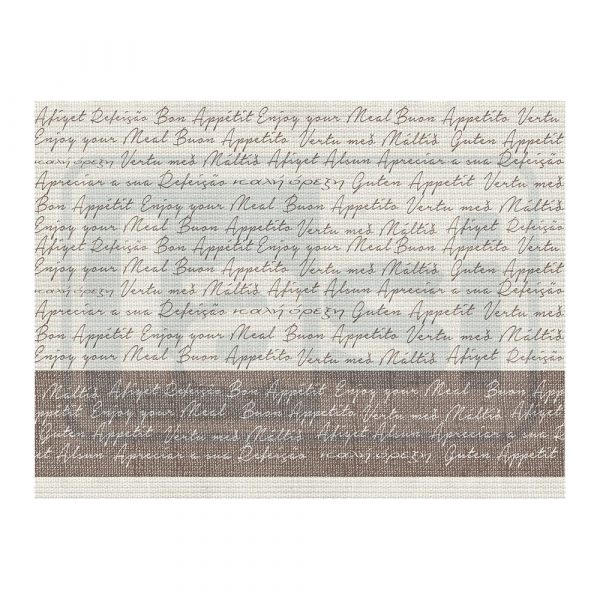 Afiyet Refeição Bon Appétit Enjoy your Meal Buon Appetito Vertu
Enjoy your Meal Buon Appetito Vertu með Máltíð Guten Appetit
καλή όρεξη Vertu með Máltíð Afiyet Alsun Apreciar a sua Refeição
Apreciar a sua Refeição καλή όρεξη Guten Appetit Vertu með
Bon Appétit Enjoy your Meal Buon Appetito Vertu með Máltíð
Enjoy your Meal Buon Appetito Vertu með Máltíð Afiyet Refeição
Afiyet Refeição Bon Appétit Enjoy your Meal Buon Appetito Vertu
Enjoy your Meal Buon Appetito Vertu með Máltíð Guten Appetit
καλή όρεξη Vertu með Máltíð Afiyet Alsun Apreciar a sua Refeição
Apreciar a sua Refeição καλή όρεξη Guten Appetit Vertu með
Bon Appétit Enjoy your Meal Buon Appetito Vertu með Máltíð
Enjoy your Meal Buon Appetito Vertu með Máltíð Afiyet Refeição
Máltíð Afiyet Refeição Bon Appétit Enjoy your Meal Buon
Appetito Enjoy your Meal Buon Appetito Vertu með Máltíð
Guten Appetit Vertu með Máltíð Afiyet Alsun Apreciar a sua
Alsun Apreciar a sua Refeição καλή όρεξη Guten Appetit